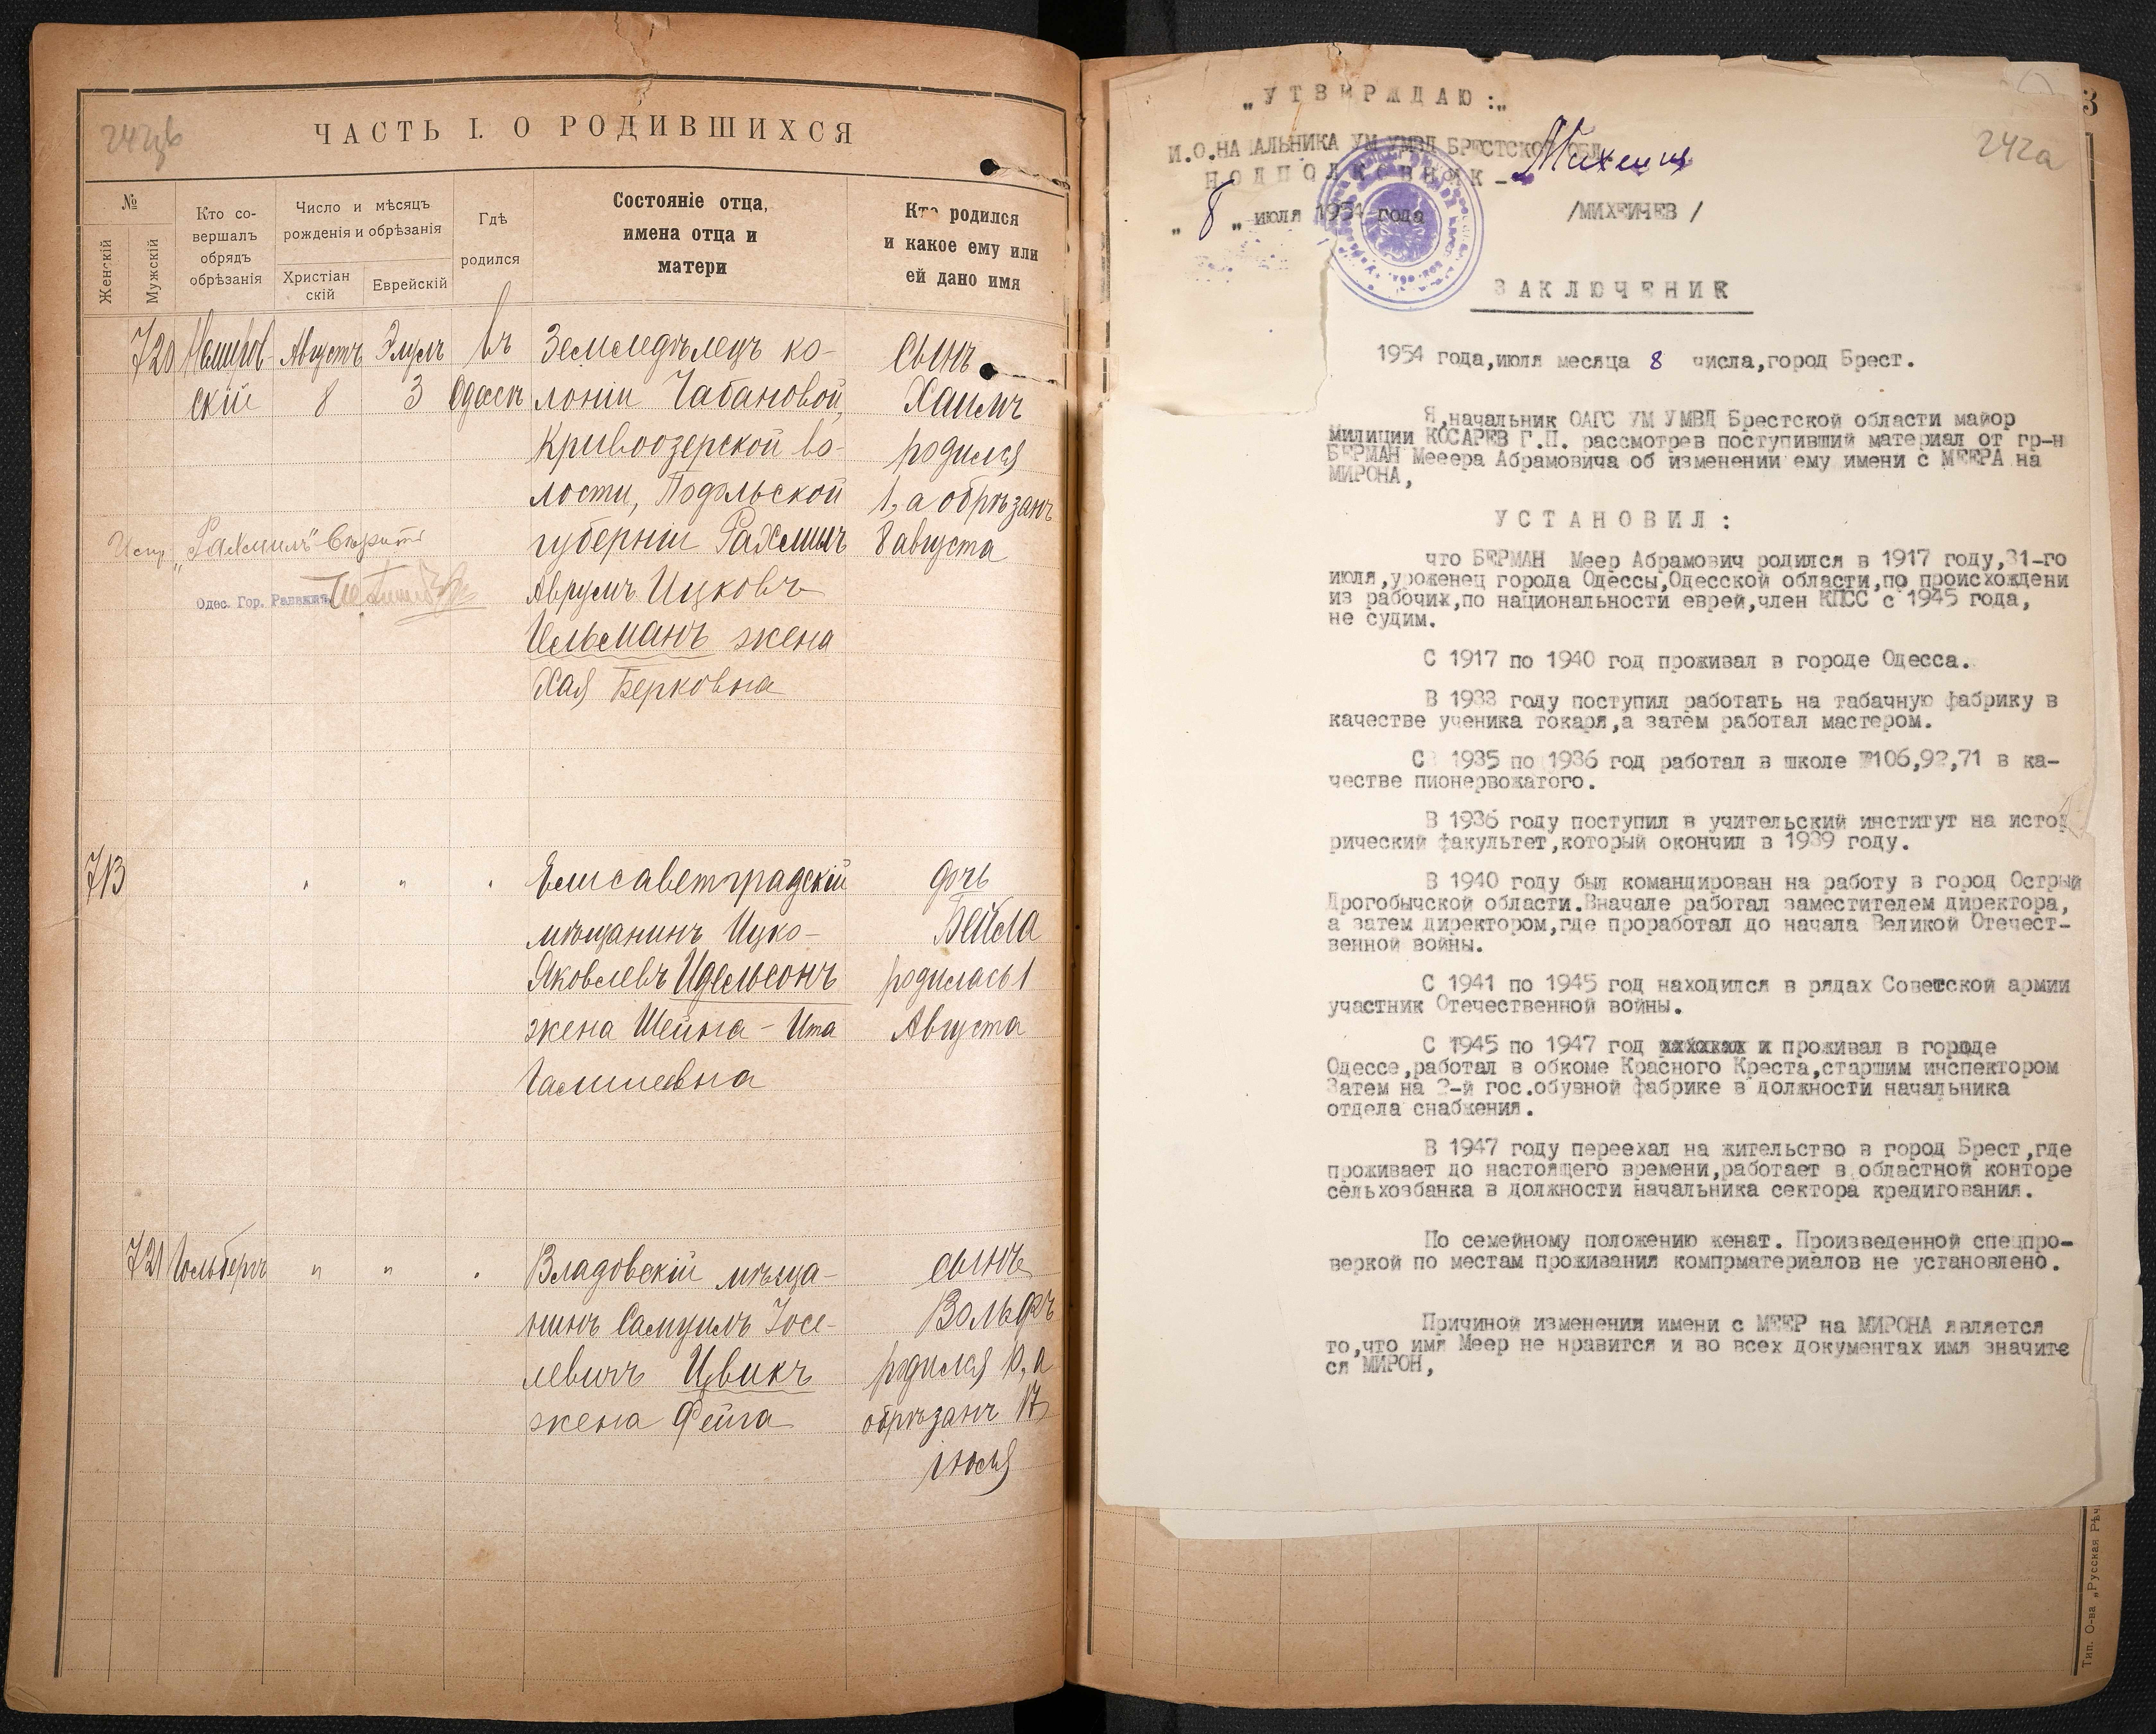 242цв
ЧАСТЬ I. О РОДИВШИХСЯ
№
Женскій
Мужскій
Кто со-
вершалъ
обрядъ
обрѣзанія
Число и мѣсяцъ
рожденія и обрѣзанія
Христіан
скій
Еврейскій
Гдѣ
родился
Состояніе отца,
имена отца и
матери
Кто родился
и какое ему или
ей дано имя
720 Немиров- Августъ Элулъ въ Земледѣлецъ ко- сынъ
скій 8 3 Одессѣ лоніи Чабановой, Хаимъ
Кривоозерской во- родился
лости, Подольской 1, а обрѣзанъ
губерніи Рахмиль 8 августа
Испр. „Рахмилъ"
Одес. Гор. Раввинъ
Аврумъ Ицковъ
Цельманъ жена
Хая Берковна
713 " " " Елисаветградскій дочь
мѣщанинъ Ицко- Бейла
Яковлевъ Идельсонъ родилась 1
жена Шейна-Ита Августа
721 Гольберг " " " Владовскій мѣща- сынъ
нинъ Самуилъ Іосе- Вольфъ
левичъ Цвикъ родился 10, а
жена Фейга обрѣзанъ 17
іюля
3
242а
„УТВЕРЖДАЮ:„
И.О.НАЧАЛЬНИКА УМ УМВД БРЕСТСКОЙ ОБЛ.
ПОДПОЛКОВНИК-
„ 8 „ июля 1954 года /МИХЕИЧЕВ/
ЗАКЛЮЧЕНИЕ
1954 года,июля месяца 8 числа,город Брест.
Я,начальник ОАГС УМ УМВД Брестской области майор
милиции КОСАРЕВ Г.П. рассмотрев поступивший материал от гр-н
БЕРМАН Мееера Абрамовича об изменении ему имени с МЕЕРА на
МИРОНА,
УСТАНОВИЛ:
что БЕРМАН Меер Абрамович родился в 1917 году,31-го
июля,уроженец города Одессы,Одесской области,по происхождени
из рабочих,по национальности еврей,член КПСС с 1945 года,
не судим.
С 1917 по 1940 год проживал в городе Одесса.
В 1933 году поступил работать на табачную фабрику в
качестве ученика токаря,а затем работал мастером.
С 1935 по 1936 год работал в школе №106,92,71 в ка-
честве пионервожатого.
В 1936 году поступил в учительский институт на исто
рический факультет,который окончил в 1939 году.
В 1940 году был командирован на работу в город Острый
Дрогобычской области.Вначале работал заместителем директора,
а затем директором,где проработал до начала Великой Отечест-
венной войны.
С 1941 по 1945 год находился в рядах Советской армии
участник Отечественной войны.
С 1945 по 1947 год проживал в городе
Одессе,работал в обкоме Красного Креста,старшим инспектором
Затем на 2-й гос.обувной фабрике в должности начальника
отдела снабжения.
В 1947 году переехал на жительство в город Брест,где
проживает до настоящего времени,работает в областной конторе
сельхозбанка в должности начальника сектора кредитования.
По семейному положению женат. Произведенной спецпро-
веркой по местам проживания компрматериалов не установлено.
Причиной изменения имени с МЕЕР на МИРОНА является
то,что имя Меер не нравится и во всех документах имя значите
ся МИРОН,
Тип. О-ва „Русская Рѣч